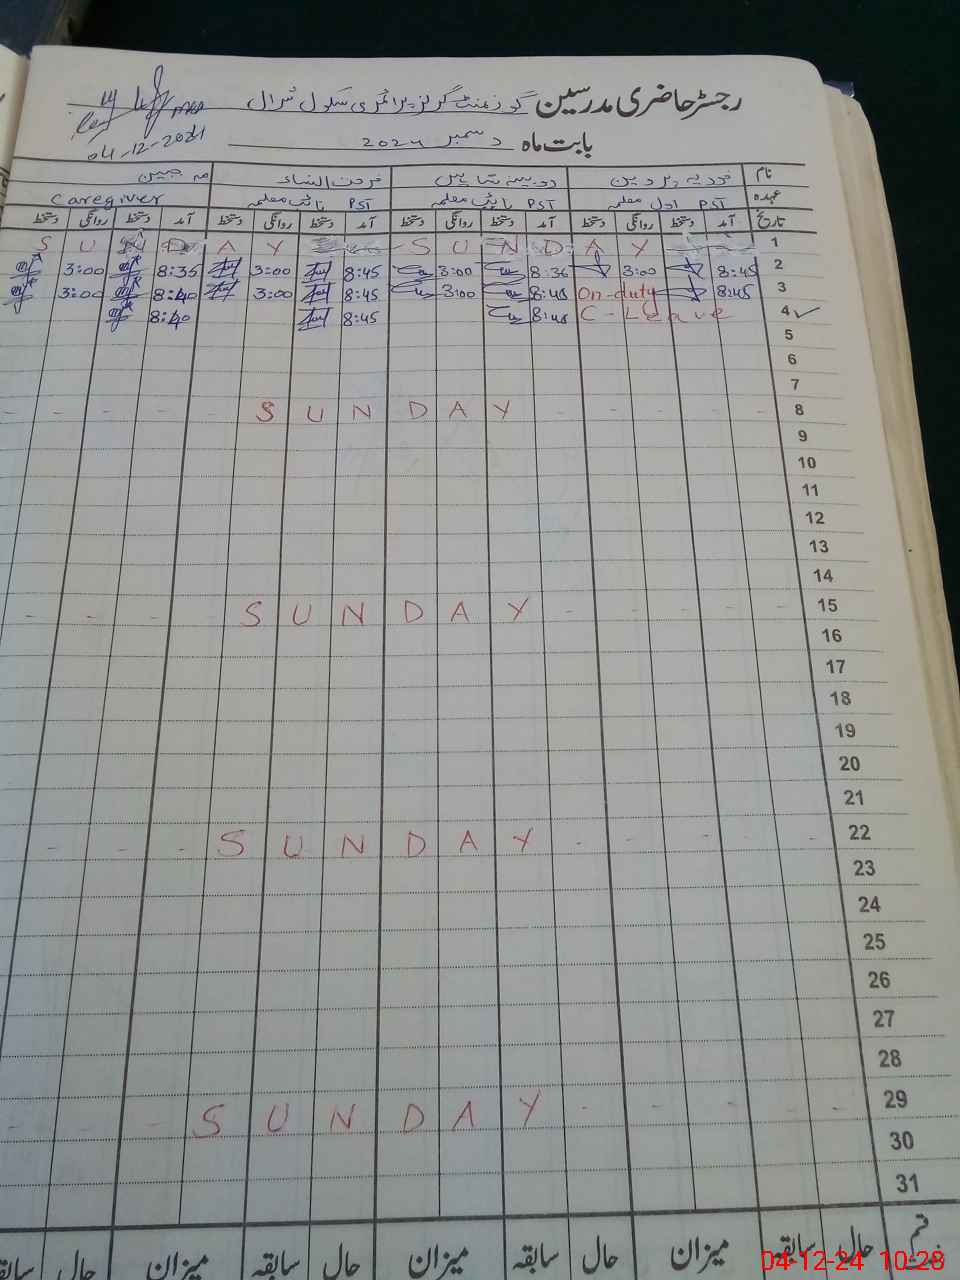 رجسٹر حاضری مدرسین گورنمنٹ گرلز پرائمری سکول ٹرال
04-12-2024
بابت ماہ دسمبر ۲۰۲۴
نام
عہدہ PST اول معلمہ PST نائب معلمہ PST نائب معلمہ Caregiver
تاریخ آمد دستخط روانگی دستخط آمد دستخط روانگی دستخط آمد دستخط روانگی دستخط آمد دستخط روانگی دستخط
S U N D A Y S U N D A Y 1
3:00 8:35 3:00 8:45 3:00 8:36 3:00 8:45 2
3:00 8:40 3:00 8:45 3:00 8:40 On-duty 8:45 3
8:40 8:45 C-Leave 4
5
6
7
S U N D A Y 8
9
10
11
12
13
14
S U N D A Y 15
16
17
18
19
20
21
S U N D A Y 22
23
24
25
26
27
28
S U N D A Y 29
30
31
حال سابقہ میزان حال سابقہ میزان حال سابقہ میزان حال
04-12-24 10:28